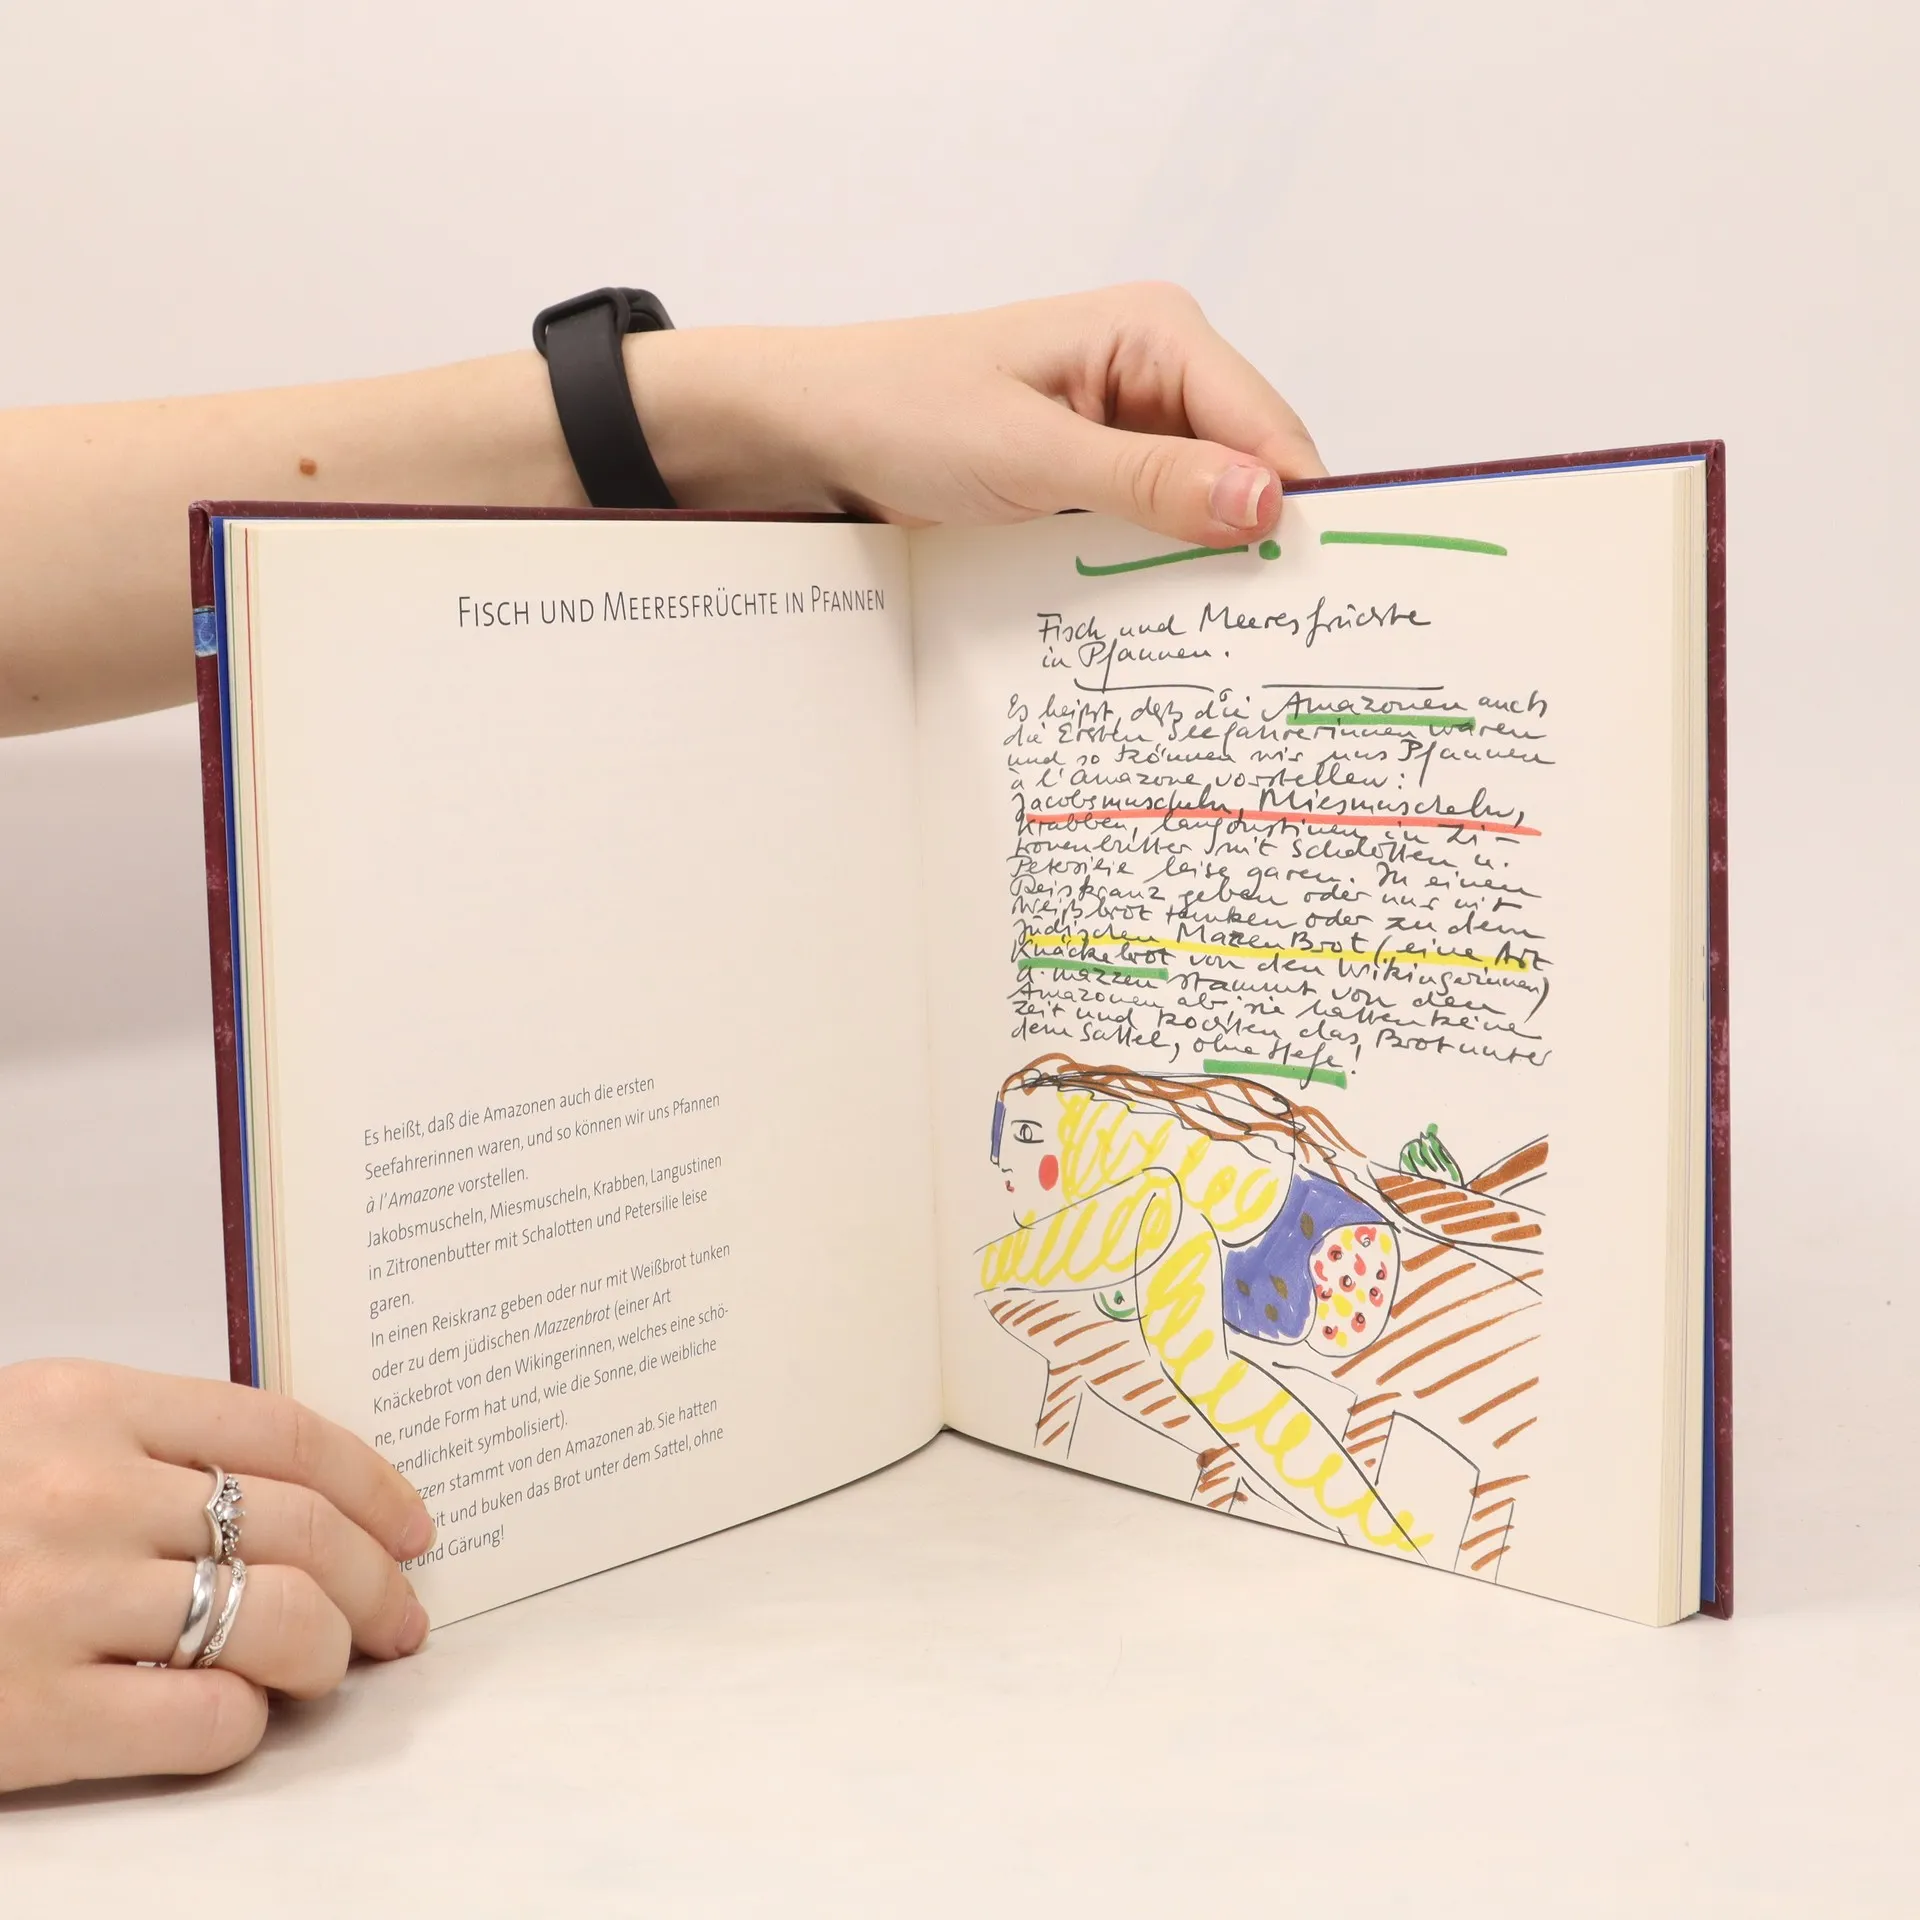 FISCH UND MEERESFRÜCHTE IN PFANNEN
Es heißt, daß die Amazonen auch die ersten
Seefahrerinnen waren, und so können wir uns Pfannen
à l'Amazone vorstellen.
Jakobsmuscheln, Miesmuscheln, Krabben, Langustinen
in Zitronenbutter mit Schalotten und Petersilie leise
garen.
In einen Reiskranz geben oder nur mit Weißbrot tunken
oder zu dem jüdischen Mazzenbrot (einer Art
Knäckebrot von den Wikingerinnen, welches eine schö-
ne, runde Form hat und, wie die Sonne, die weibliche
endlichkeit symbolisiert).
zzen stammt von den Amazonen ab. Sie hatten
eit und buken das Brot unter dem Sattel, ohne
und Gärung!
Fisch und Meeresfrüchte
in Pfannen.
Es heißt, daß die Amazonen auch
die Ersten Seefahrerinnen waren
und so können wir uns Pfannen
à l'Amazone vorstellen:
Jacobsmuscheln, Miesmuscheln,
Krabben, Langustinen in Zi-
tronenbutter mit Schalotten u.
Petersilie leise garen. In einen
Reiskranz geben oder nur mit
Weißbrot tunken oder zu dem
Jüdischen Mazzen Brot (eine Art
Knäckebrot von den Wikingerinnen)
d. mazzen stammt von den
Amazonen ab, sie hatten keine
Zeit und kochten das Brot unter
dem Sattel, ohne Hefe!